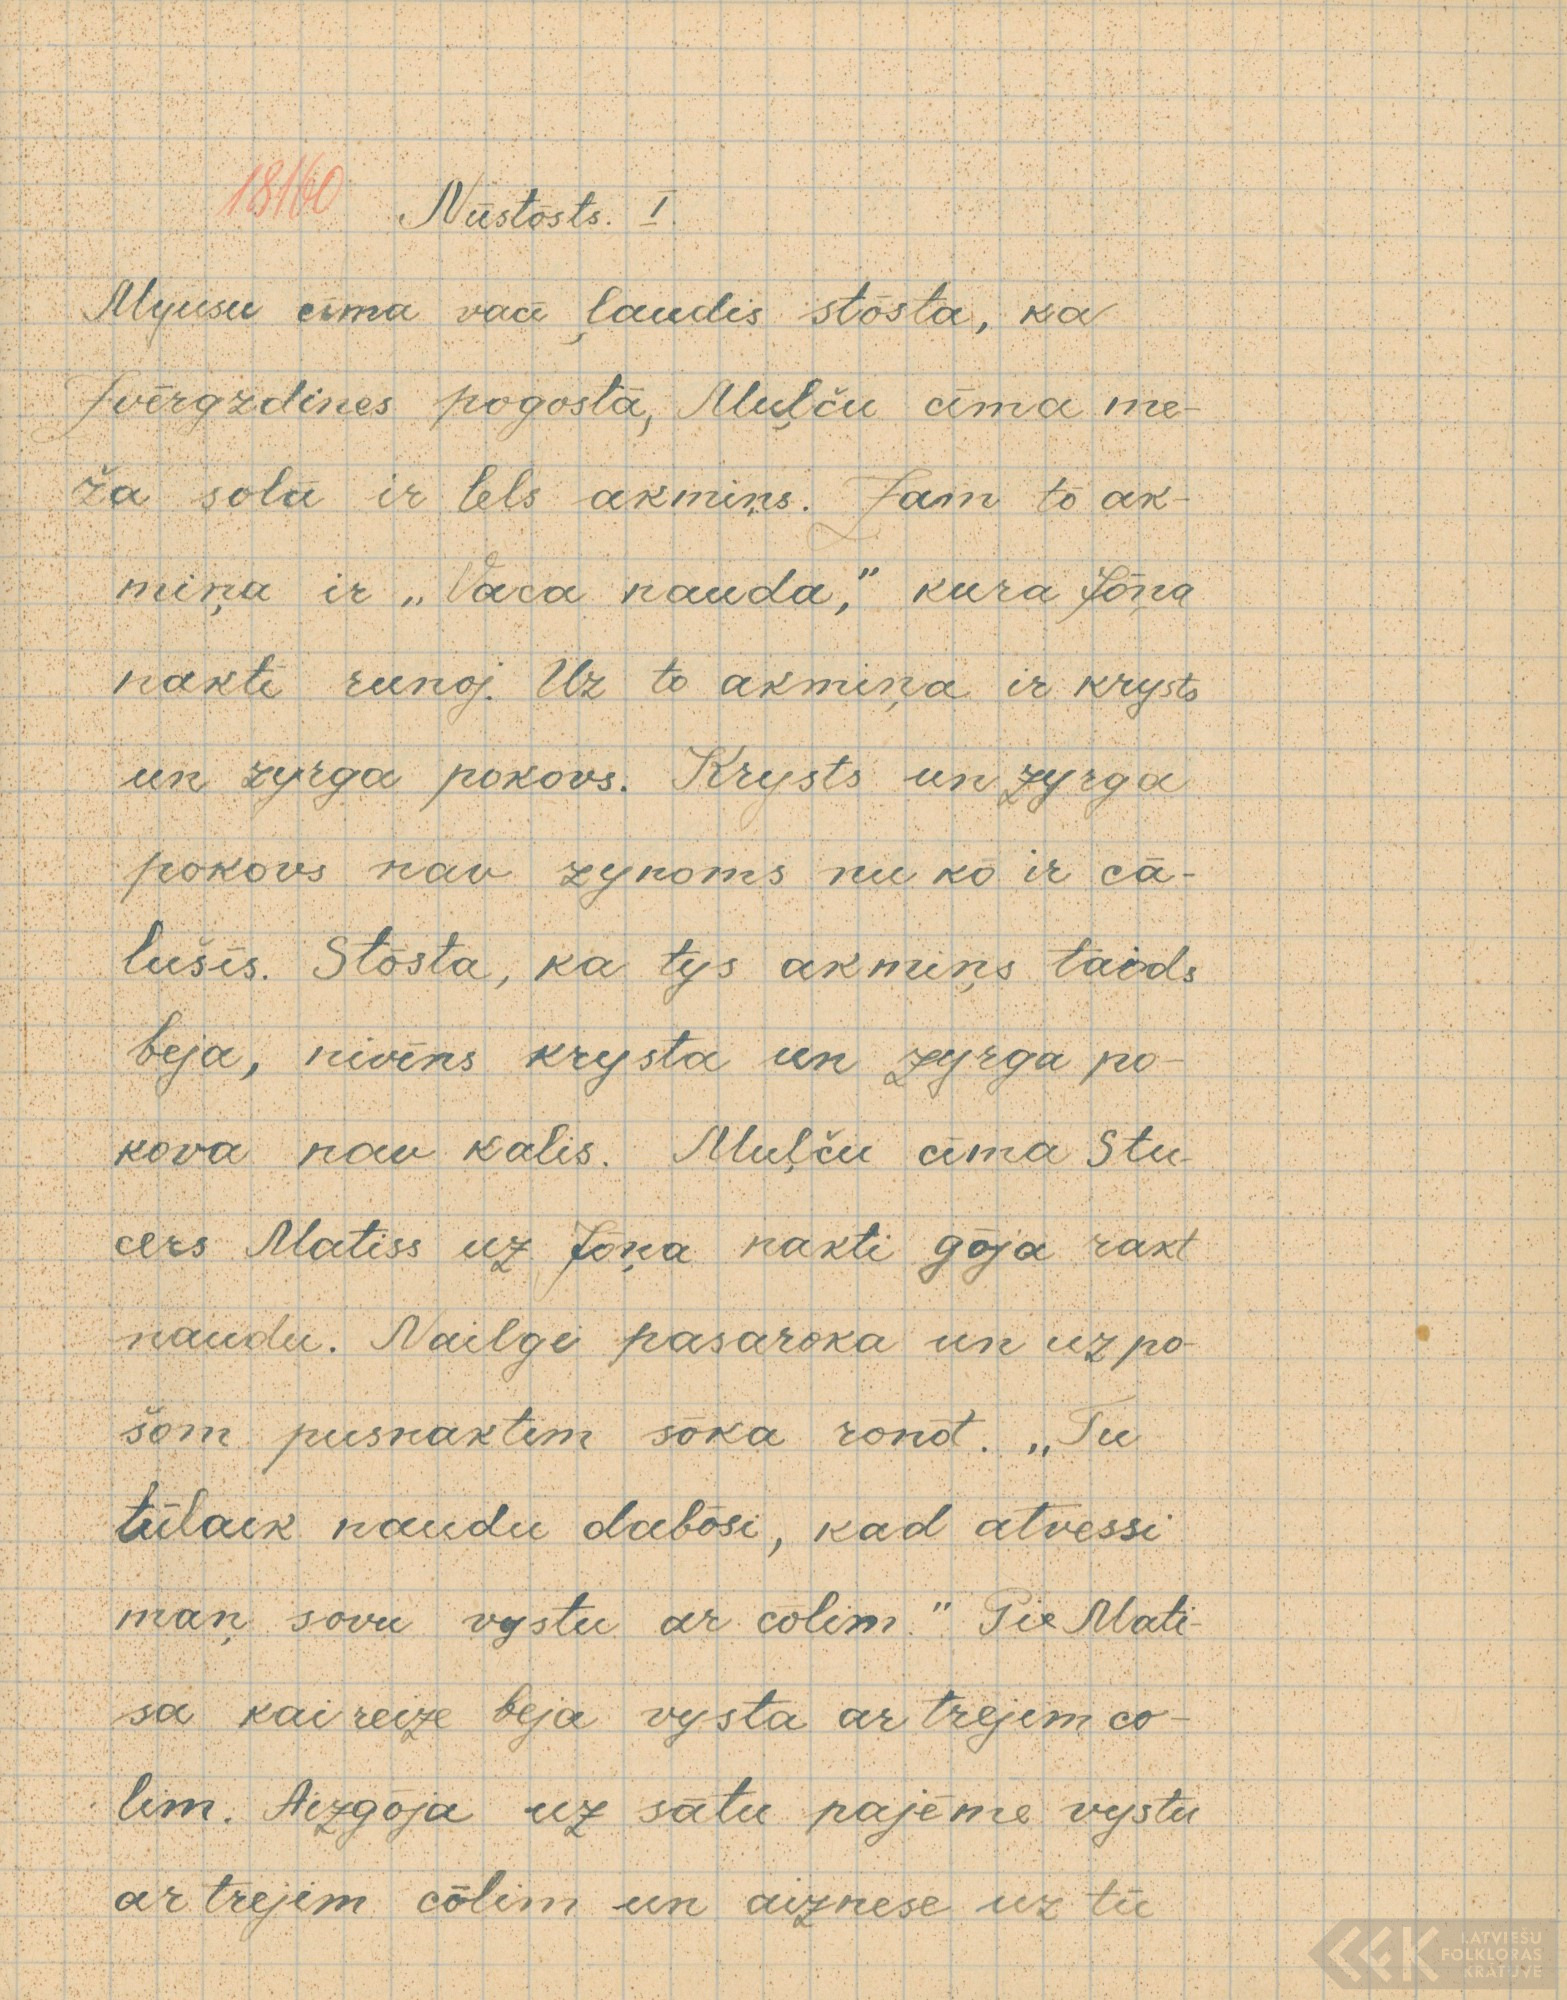 18160
Nūstōsts. I.
Myusu cīma vaci ļaudis stōsta, ka
Zvērgzdines pogostā, Muļču cīma me-
ža solā ir lels akmiņs. Zam tō ak-
miņa ir „Vaca nauda," kura Jōņa
nakti runoj. Uz to akmiņa ir krysts
un zyrga pokovs. Krysts un zyrga
pokovs nav zynoms nu kō ir cā-
lušīs. Stōsta, ka tys akmiņs taids
beja, nivīns krysta un zyrga po-
kova nav kalis. Muļču cīma Stu-
cers Matiss uz Jōņa nakti gōja rakt
naudu. Nailgi pasaroka un uz po-
šom pusnaktim sōka ronōt. „Tu
tūlaik naudu dabōsi, kad atvessi
maņ sovu vystu ar cōlim." Pie Mati-
sa kai reize beja vysta ar trejim co-
lim. Aizgōja uz sātu pajēme vystu
ar trejim cōlim un aiznese uz tū
LATVIEŠU
FOLKLORAS
KRĀTUVE